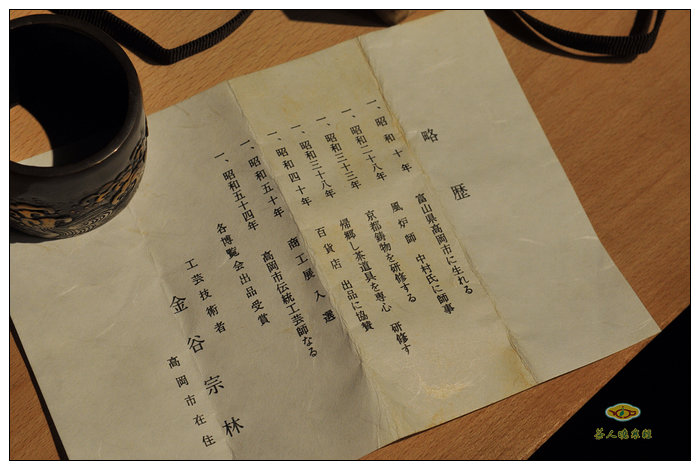 略歴
一、昭和十年 富山県高岡市に生れる
一、昭和二十八年 風炉師 中村氏に師事
一、昭和三十三年 京都鋳物を研修する
一、昭和三十八年 帰郷し茶道具を専心 研修す
一、昭和四十年 百貨店 出品に協賛
一、昭和五十年 商工展入選
一、昭和五十四年 高岡市伝統工芸師なる
各博覧会出品受賞
工芸技術者
金谷宗林
高岡市在住